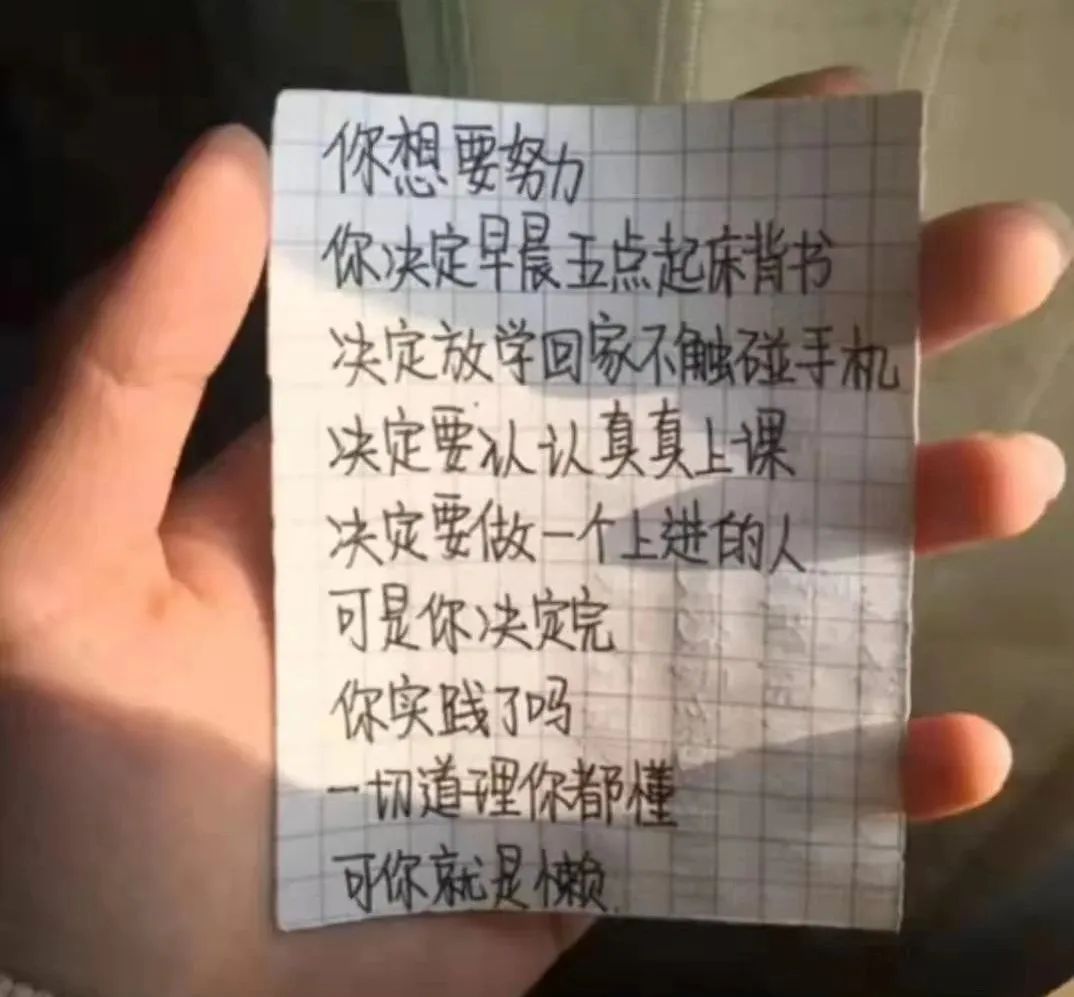 你想要努力
你决定早晨五点起床背书
决定放学回家不触碰手机
决定要认认真真上课
决定要做一个上进的人
可是你决定完
你实践了吗
一切道理你都懂
可你就是懒